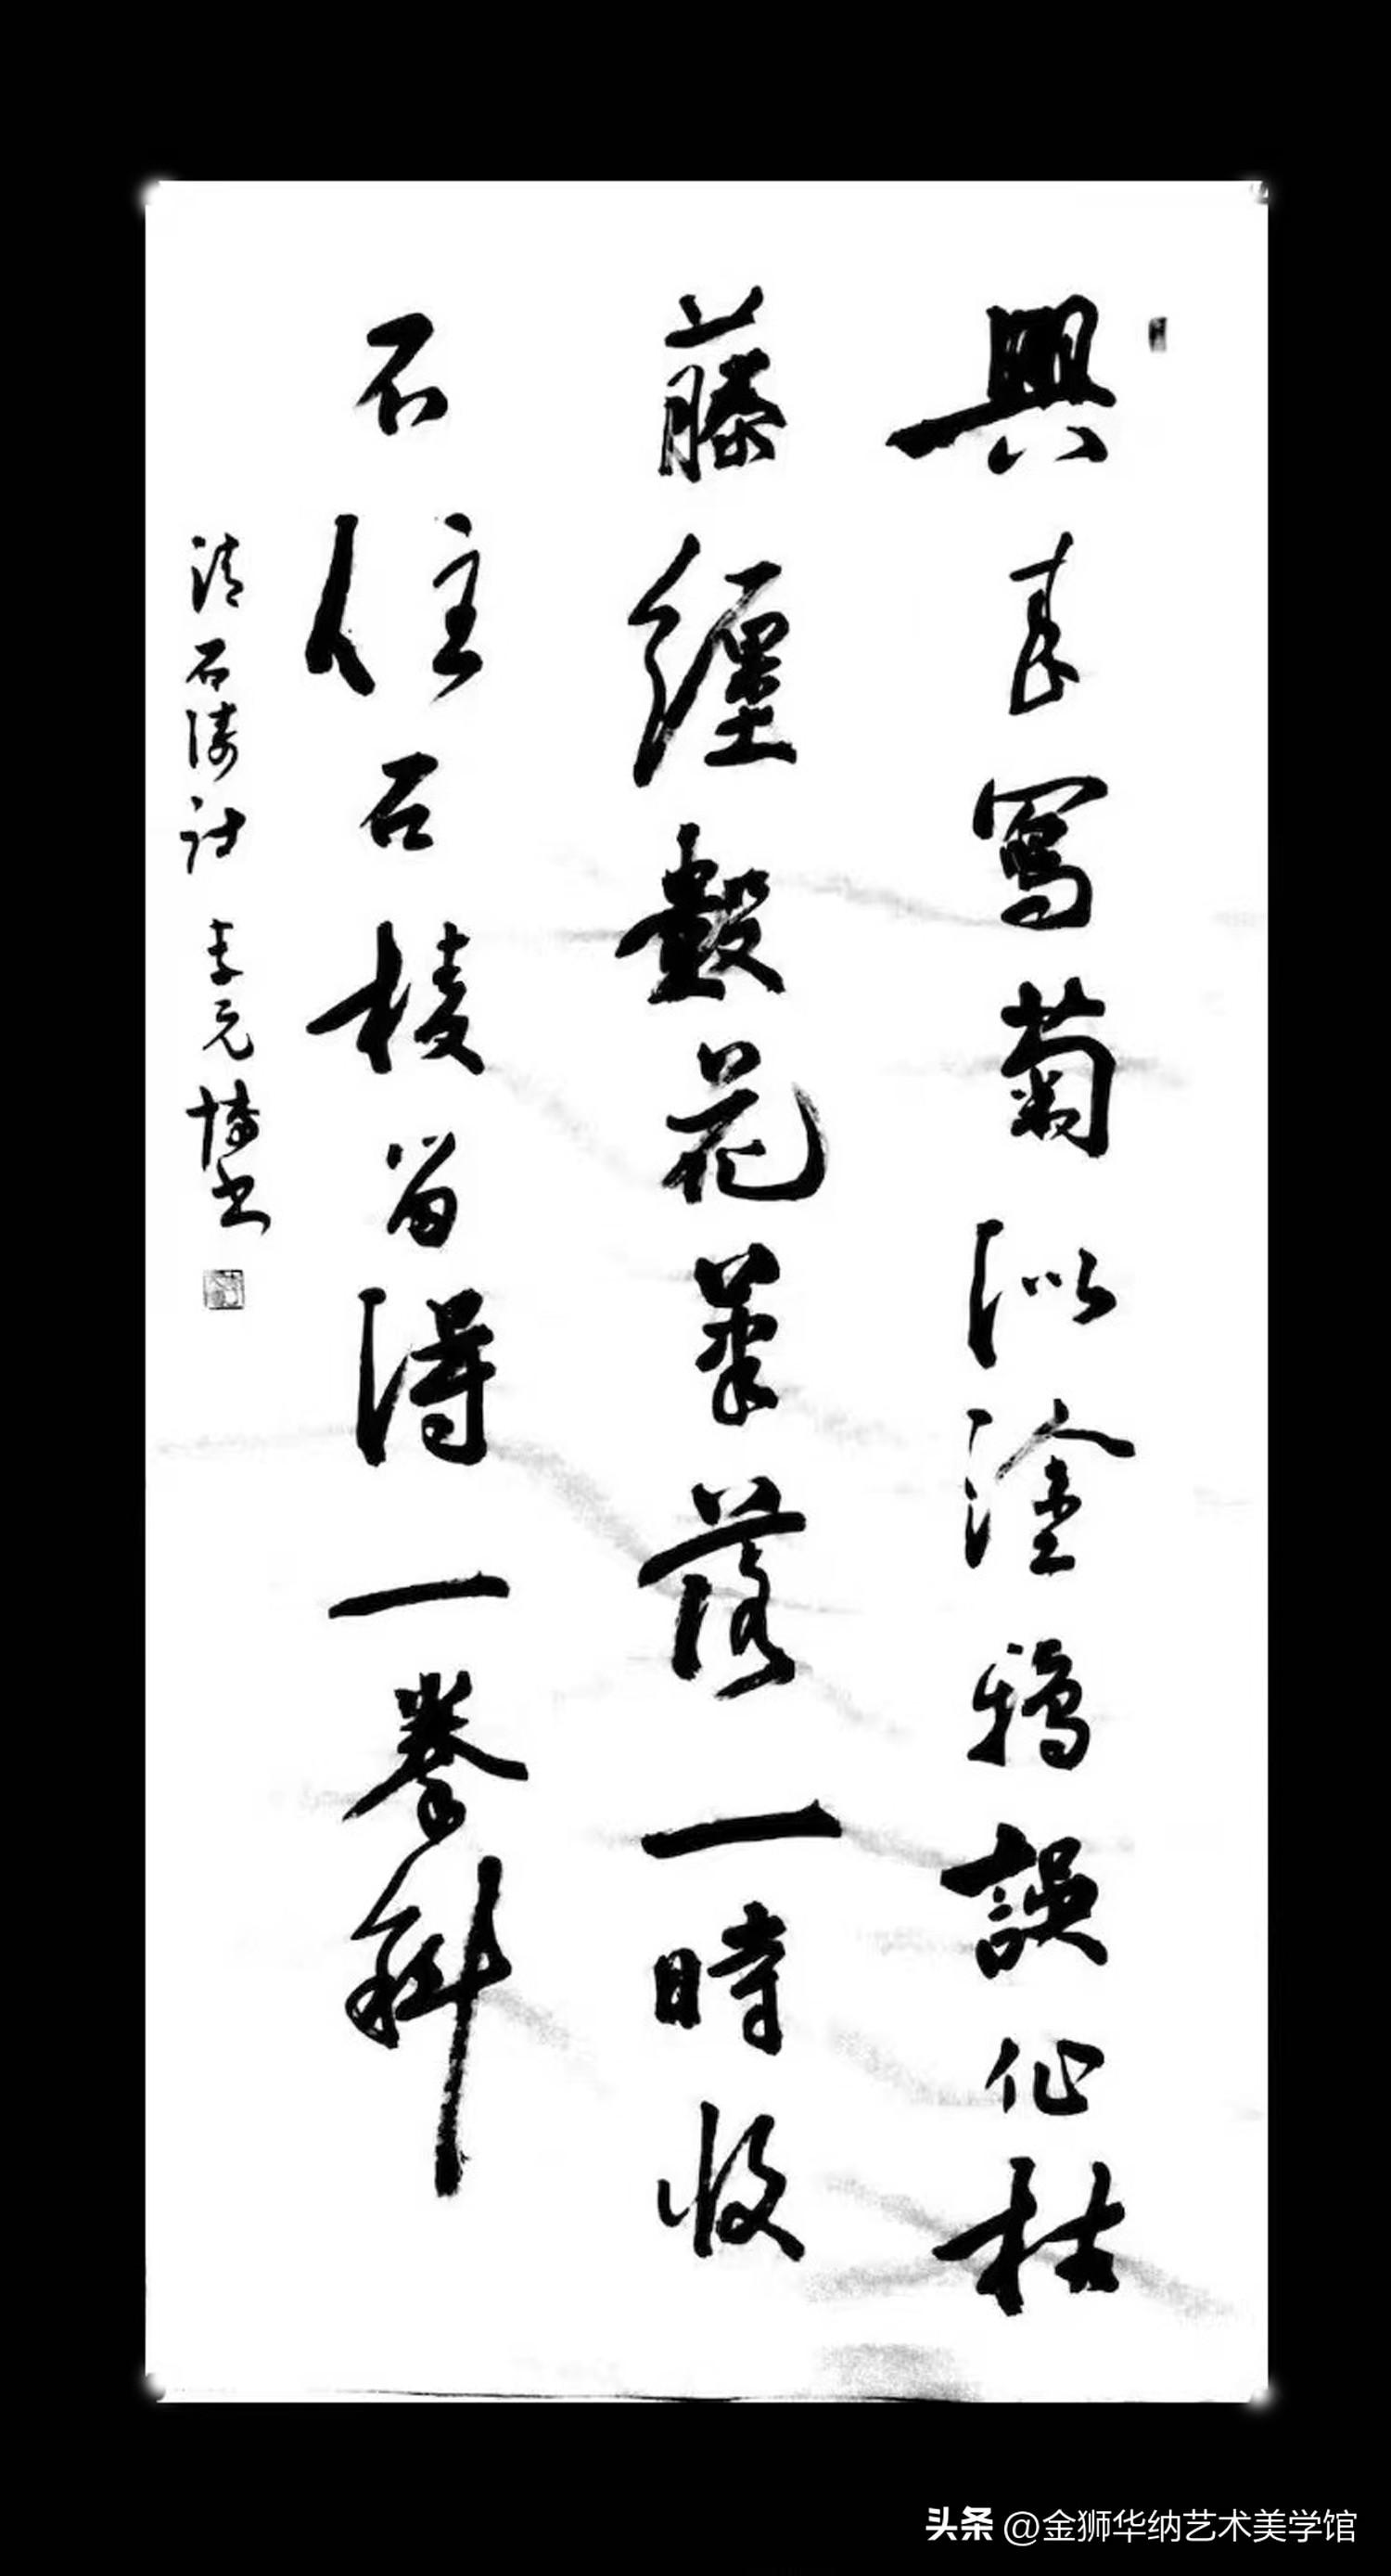 興來寫菊似塗鴉誤作枯
藤纏數花筆落一時收
不住石棱留得一拳斜
清石濤詩 李元博书
头条 @金狮华纳艺术美学馆